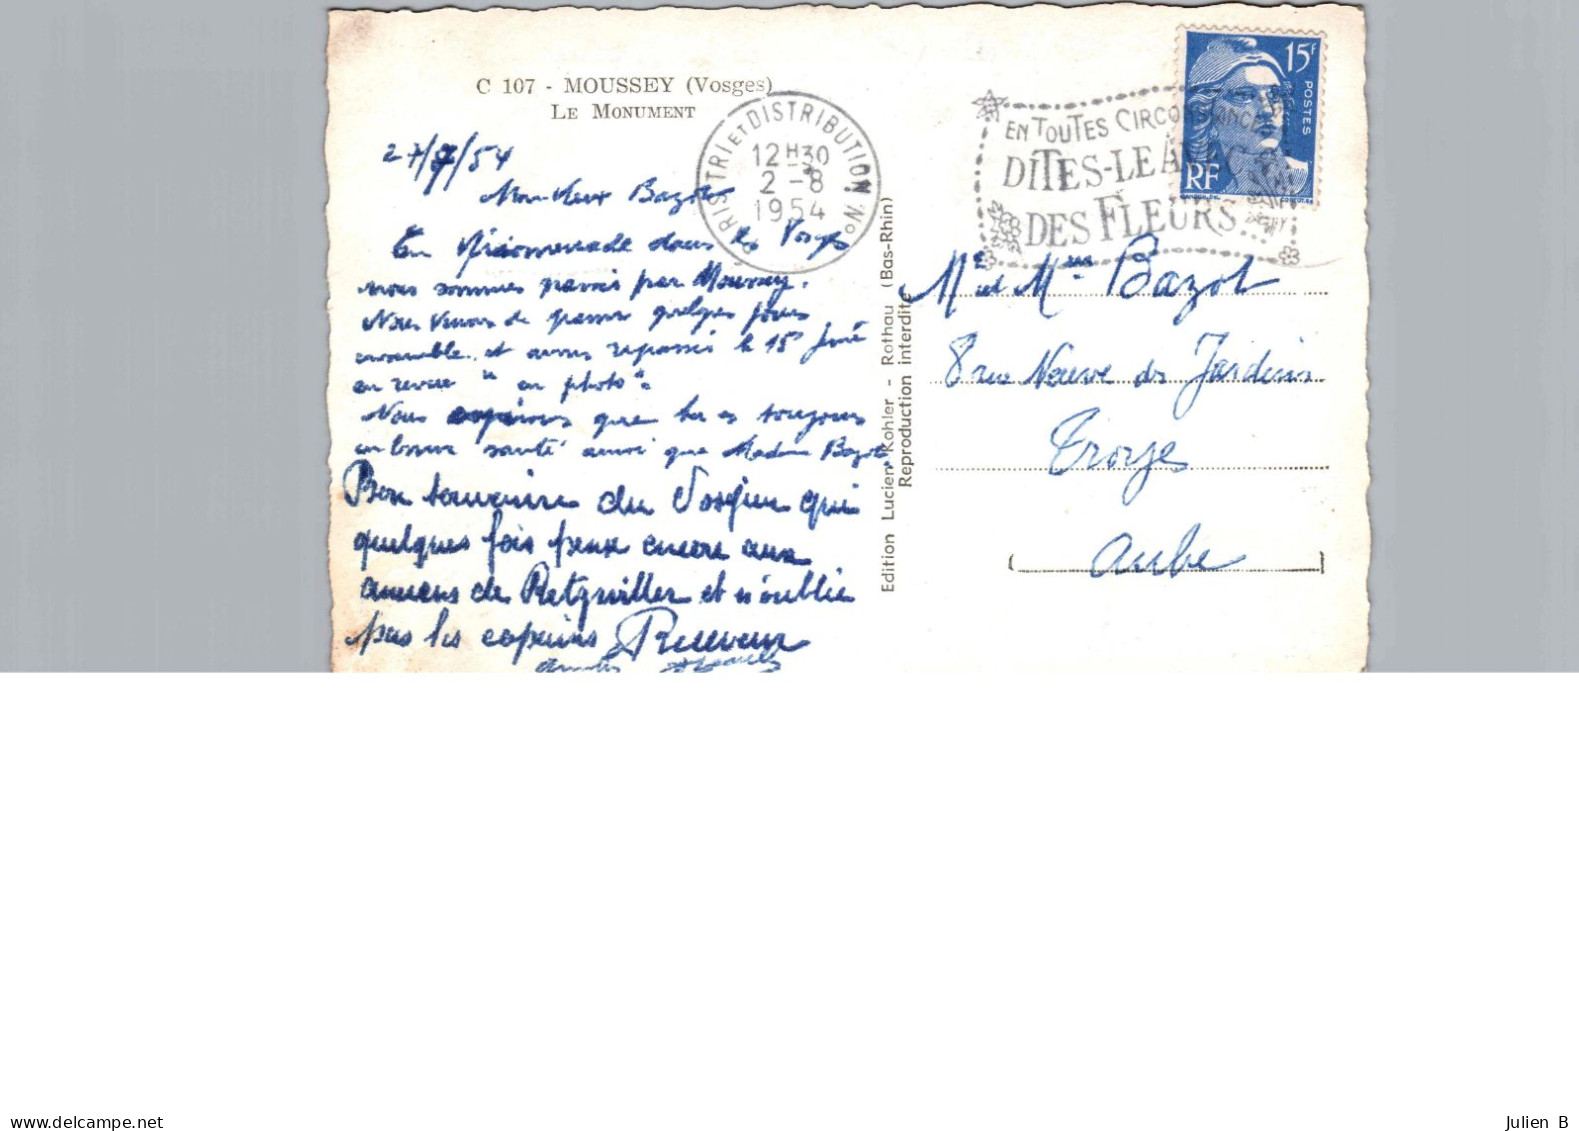 C 107 - MOUSSEY (Vosges)
LE MONUMENT
27/7/54
Mon vieux Bazot
En promenade dans les Vosges
nous sommes passés par Moussey.
Nous venons de passer quelques jours
ensemble et avons repassé le 15
en revue "en photo".
Nous espérons que tu es toujours
en bonne santé ainsi que Madame Bazot.
Bon souvenir du Vosgien qui
quelques fois pense encore aux
anciens de Retzwiller et n'oublie
pas les copains Receveur
PARIS TRI ET DISTRIBUTION No
12H30
2-8
1954
EN TOUTES CIRCONSTANCES
DITES-LE AVEC
DES FLEURS
15F
POSTES
RF
GANDON, DEL.
Mr et Mme Bazot
8 rue Neuve des Jardins
Troyes
Aube
Edition Lucien Kohler - Rothau (Bas-Rhin)
Reproduction interdite
www.delcampe.net
Julien B